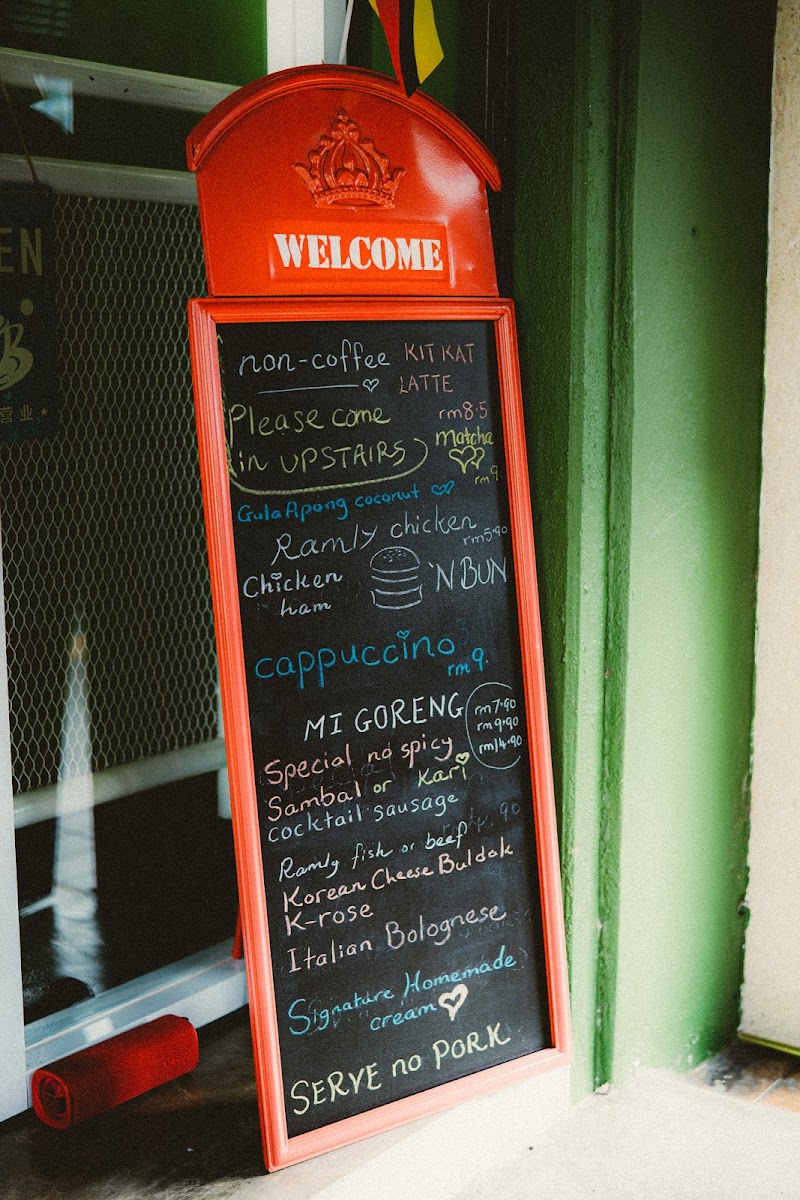 EN
营业
WELCOME
non-coffee
KIT KAT
LATTE
rm8.5
Please come
in UPSTAIRS
Matcha
rm9.
Gula Apong coconut
Ramly chicken
rm5.90
Chicken
ham
'N BUN
cappuccino
rm9.
MI GORENG
rm7.90
rm9.90
rm14.90
Special no spicy
Sambal or Kari
cocktail sausage
Ramly fish or beef
Korean Cheese Buldak
K-rose
Italian Bolognese
Signature Homemade
cream
SERVE no PORK